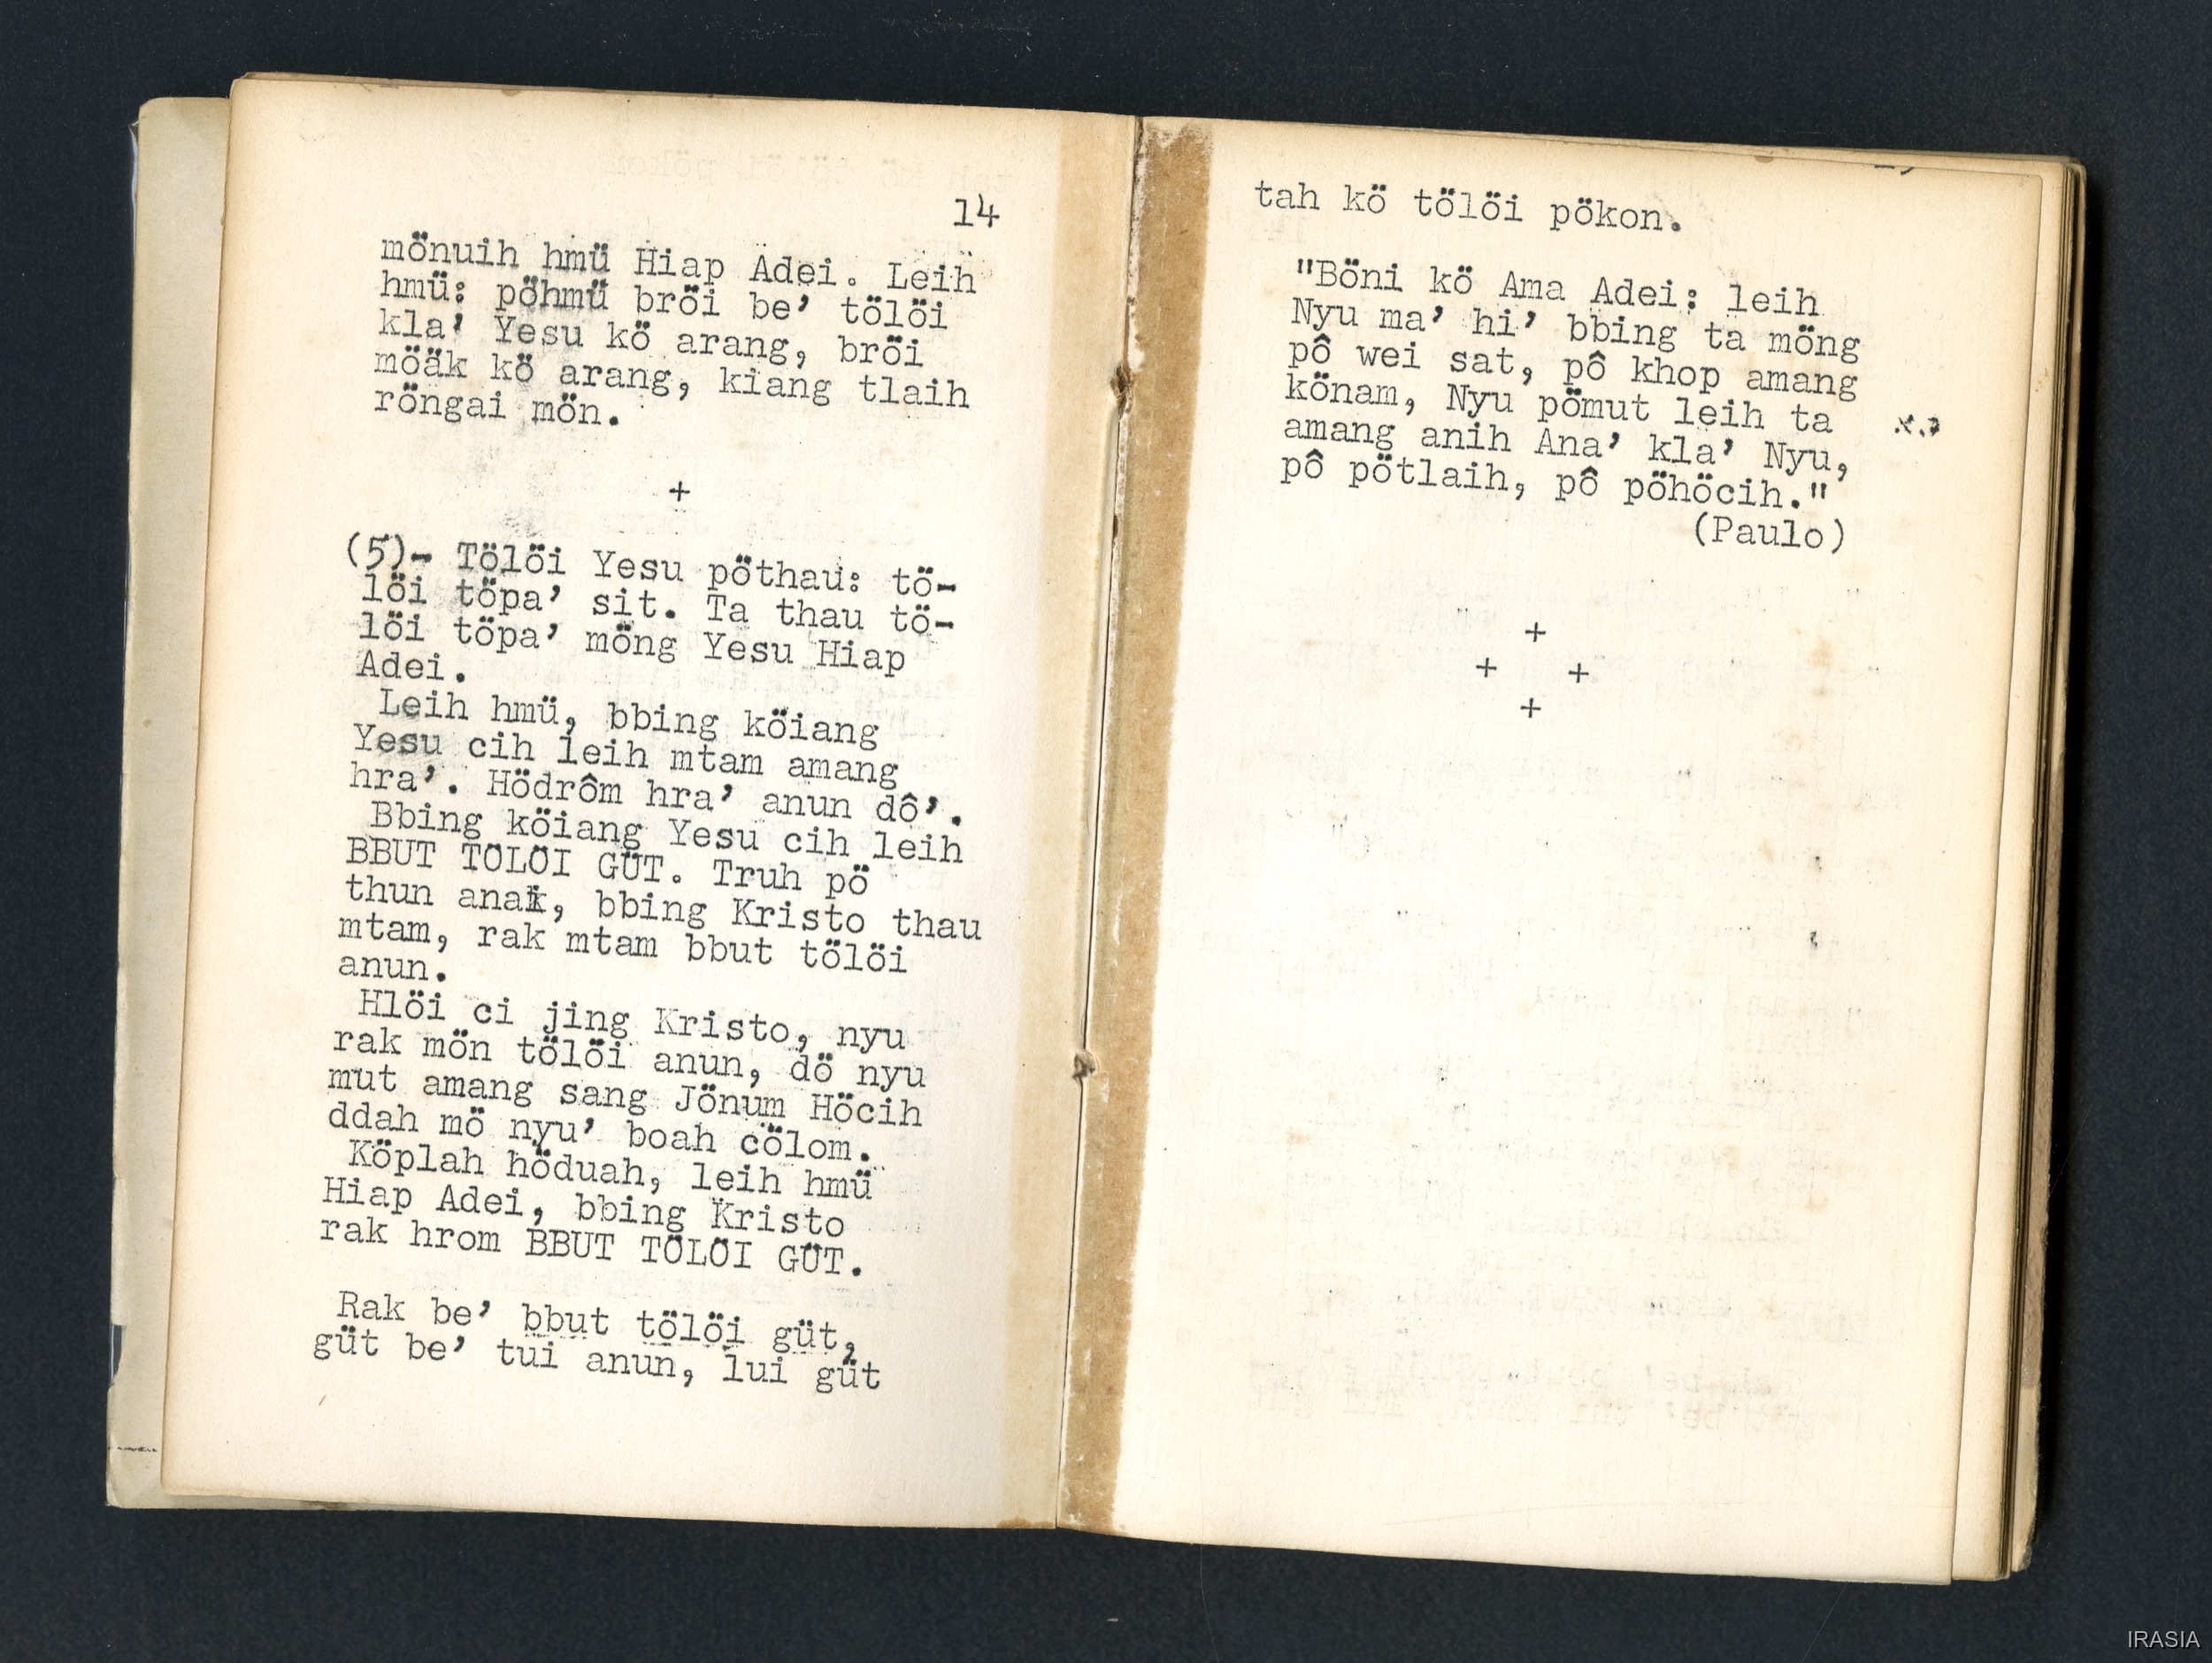 14
mönuih hmü Hiap Adei. Leih
hmü: pöhmü bröi be’ tölöi
kla’ Yesu kö arang, bröi
möäk kö arang, kiang tlaih
röngai mön.
+
(5)- Tölöi Yesu pöthau: tö-
löi töpa’ sit. Ta thau tö-
löi töpa’ möng Yesu Hiap
Adei.
Leih hmü, bbing köiang
Yesu cih leih mtam amang
hra’. Hödrôm hra’ anun dô’.
Bbing köiang Yesu cih leih
BBUT TÖLÖI GÜT. Truh pö
thun anak, bbing Kristo thau
mtam, rak mtam bbut tölöi
anun.
Hlöi ci jing Kristo, nyu
rak mön tölöi anun, dö nyu
mut amang sang Jönum Höcih
ddah mö nyu’ boah cölom.
Köplah höduah, leih hmü
Hiap Adei, bbing Kristo
rak hrom BBUT TÖLÖI GÜT.
Rak be’ bbut tölöi güt,
güt be’ tui anun, lui güt
tah kö tölöi pökon.
"Böni kö Ama Adei: leih
Nyu ma’ hi’ bbing ta möng
pô wei sat, pô khop amang
könam, Nyu pömut leih ta
amang anih Ana’ kla’ Nyu,
pô pötlaih, pô pöhöcih."
(Paulo)
+
+ +
+
IRASIA